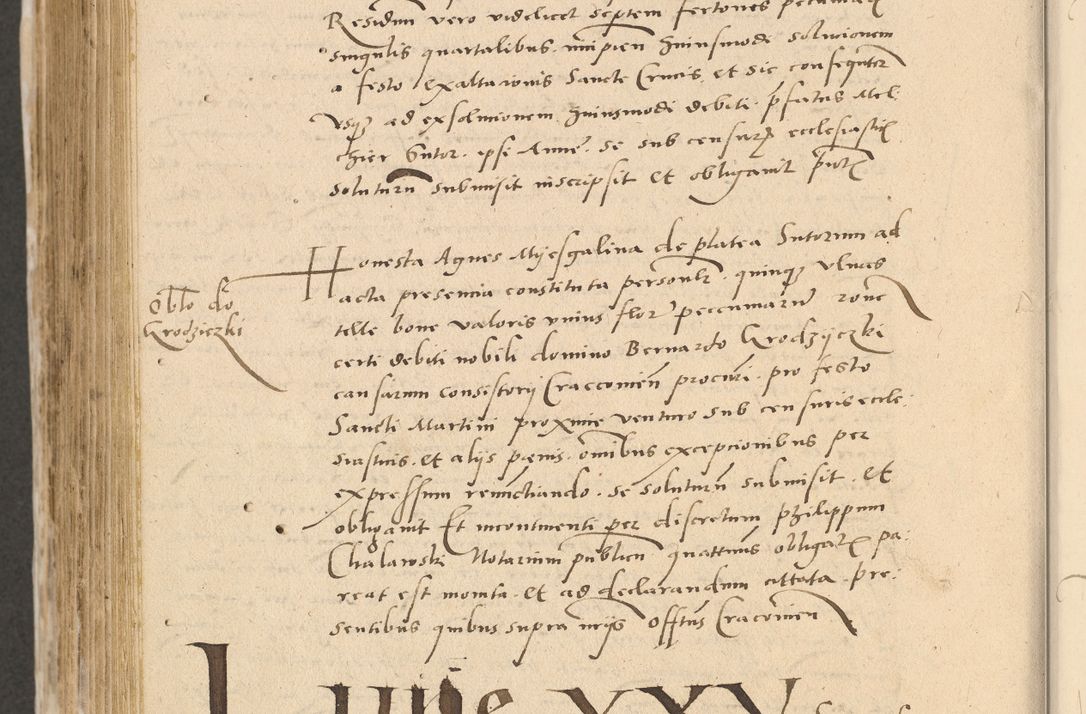 Residum vero videlicet septem fertones pecuniar
singulis quartalibus incipien huiusmodi solucionem
a festo Exaltacionis Sancte Crucis et sic consequter
vsque ad exsolucionem huiusmodi debiti pfatus Mel:
chier Sutor ipsi Anne se sub censuris ecclesiastic
soluturum submisit inscripsit et obligavit
Honesta Agnes Myesgalina de platea Sutorum ad
acta presencia constituta personlr quinque vlnas
Obllo do
Krodziczki
telle bone valoris vnius flor peccuniarum rone
certi debiti nobili domino Bernardo Krodzyczki
causarum consistorij Craccouien procuri pro festo
Sancti Martini proxime venturo sub censuris eccle:
siasticis et alijs penis omibus excepcionibus per
expressum renunctiando se soluturum submisit et
obligavit Et incontinenti per discretum Philippum
Chalawski Notarium publicu quattinus obligate pa:
reat est monita et ad declarandum cittata pre:
sentibus quibus supra Offtus Cracouien
Lune XXX